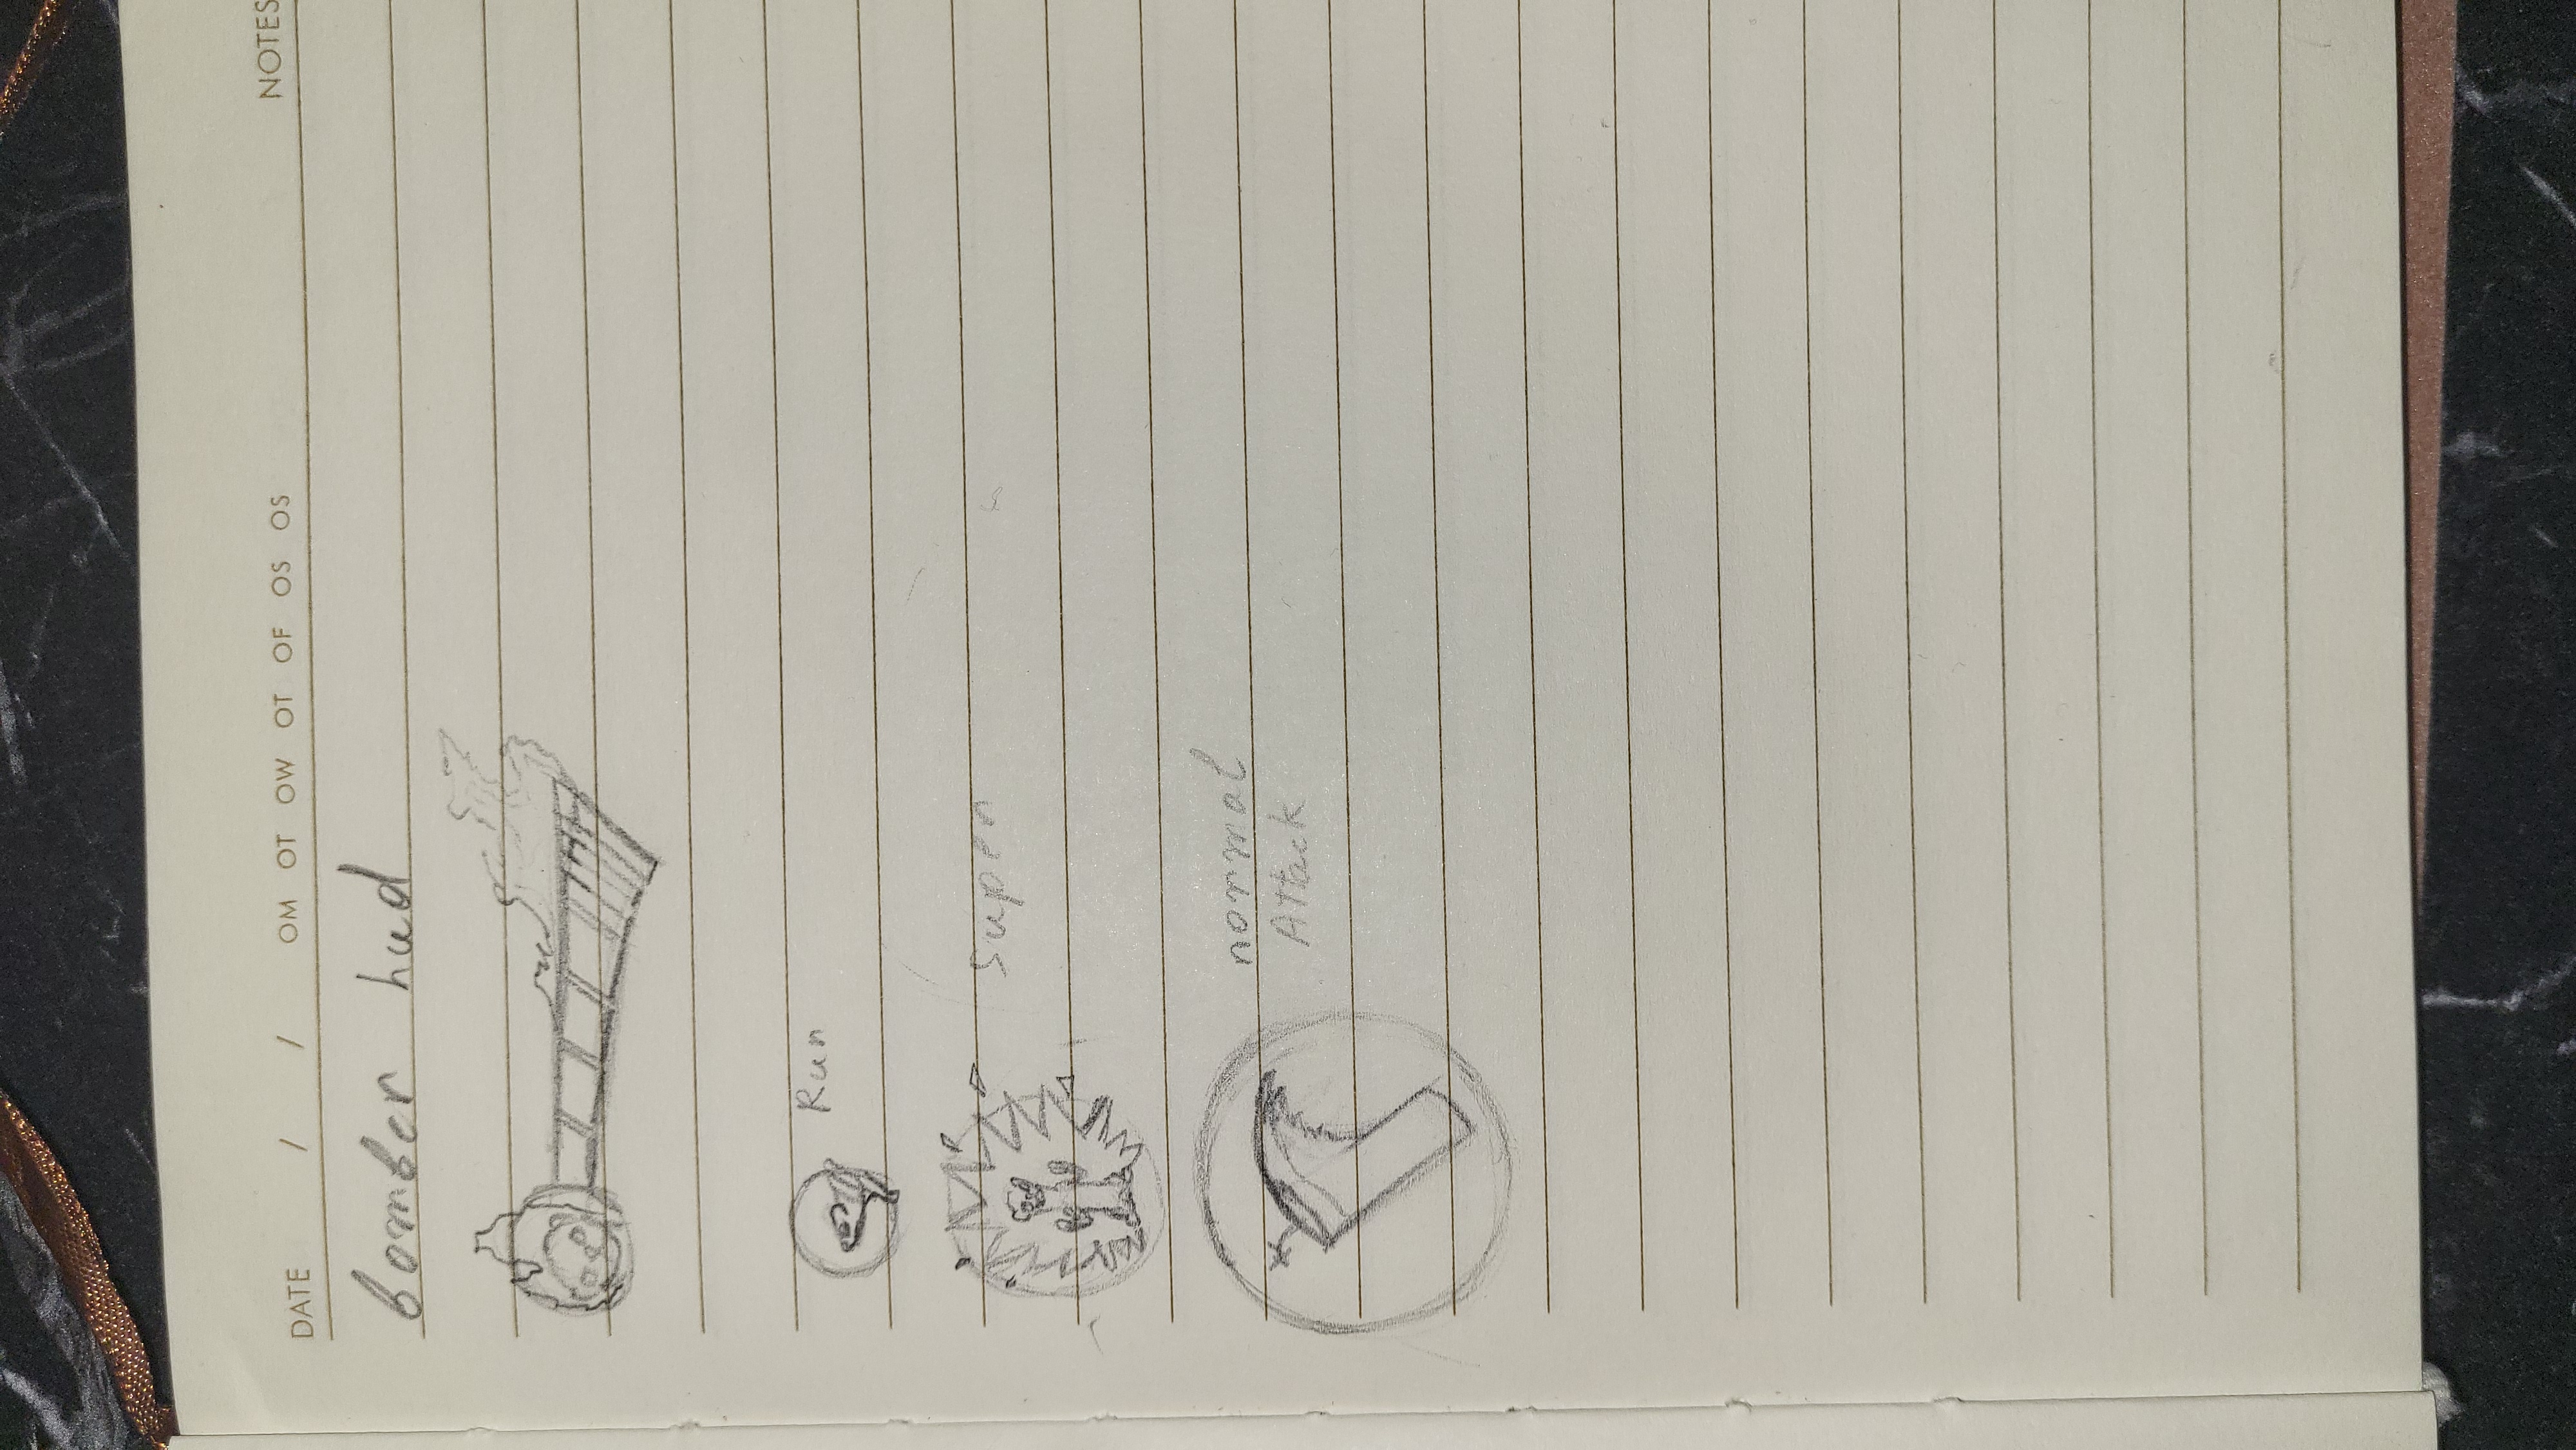 DATE / / OM OT OW OT OF OS OS NOTES
bomber hud
Run
Super
normal
Attack